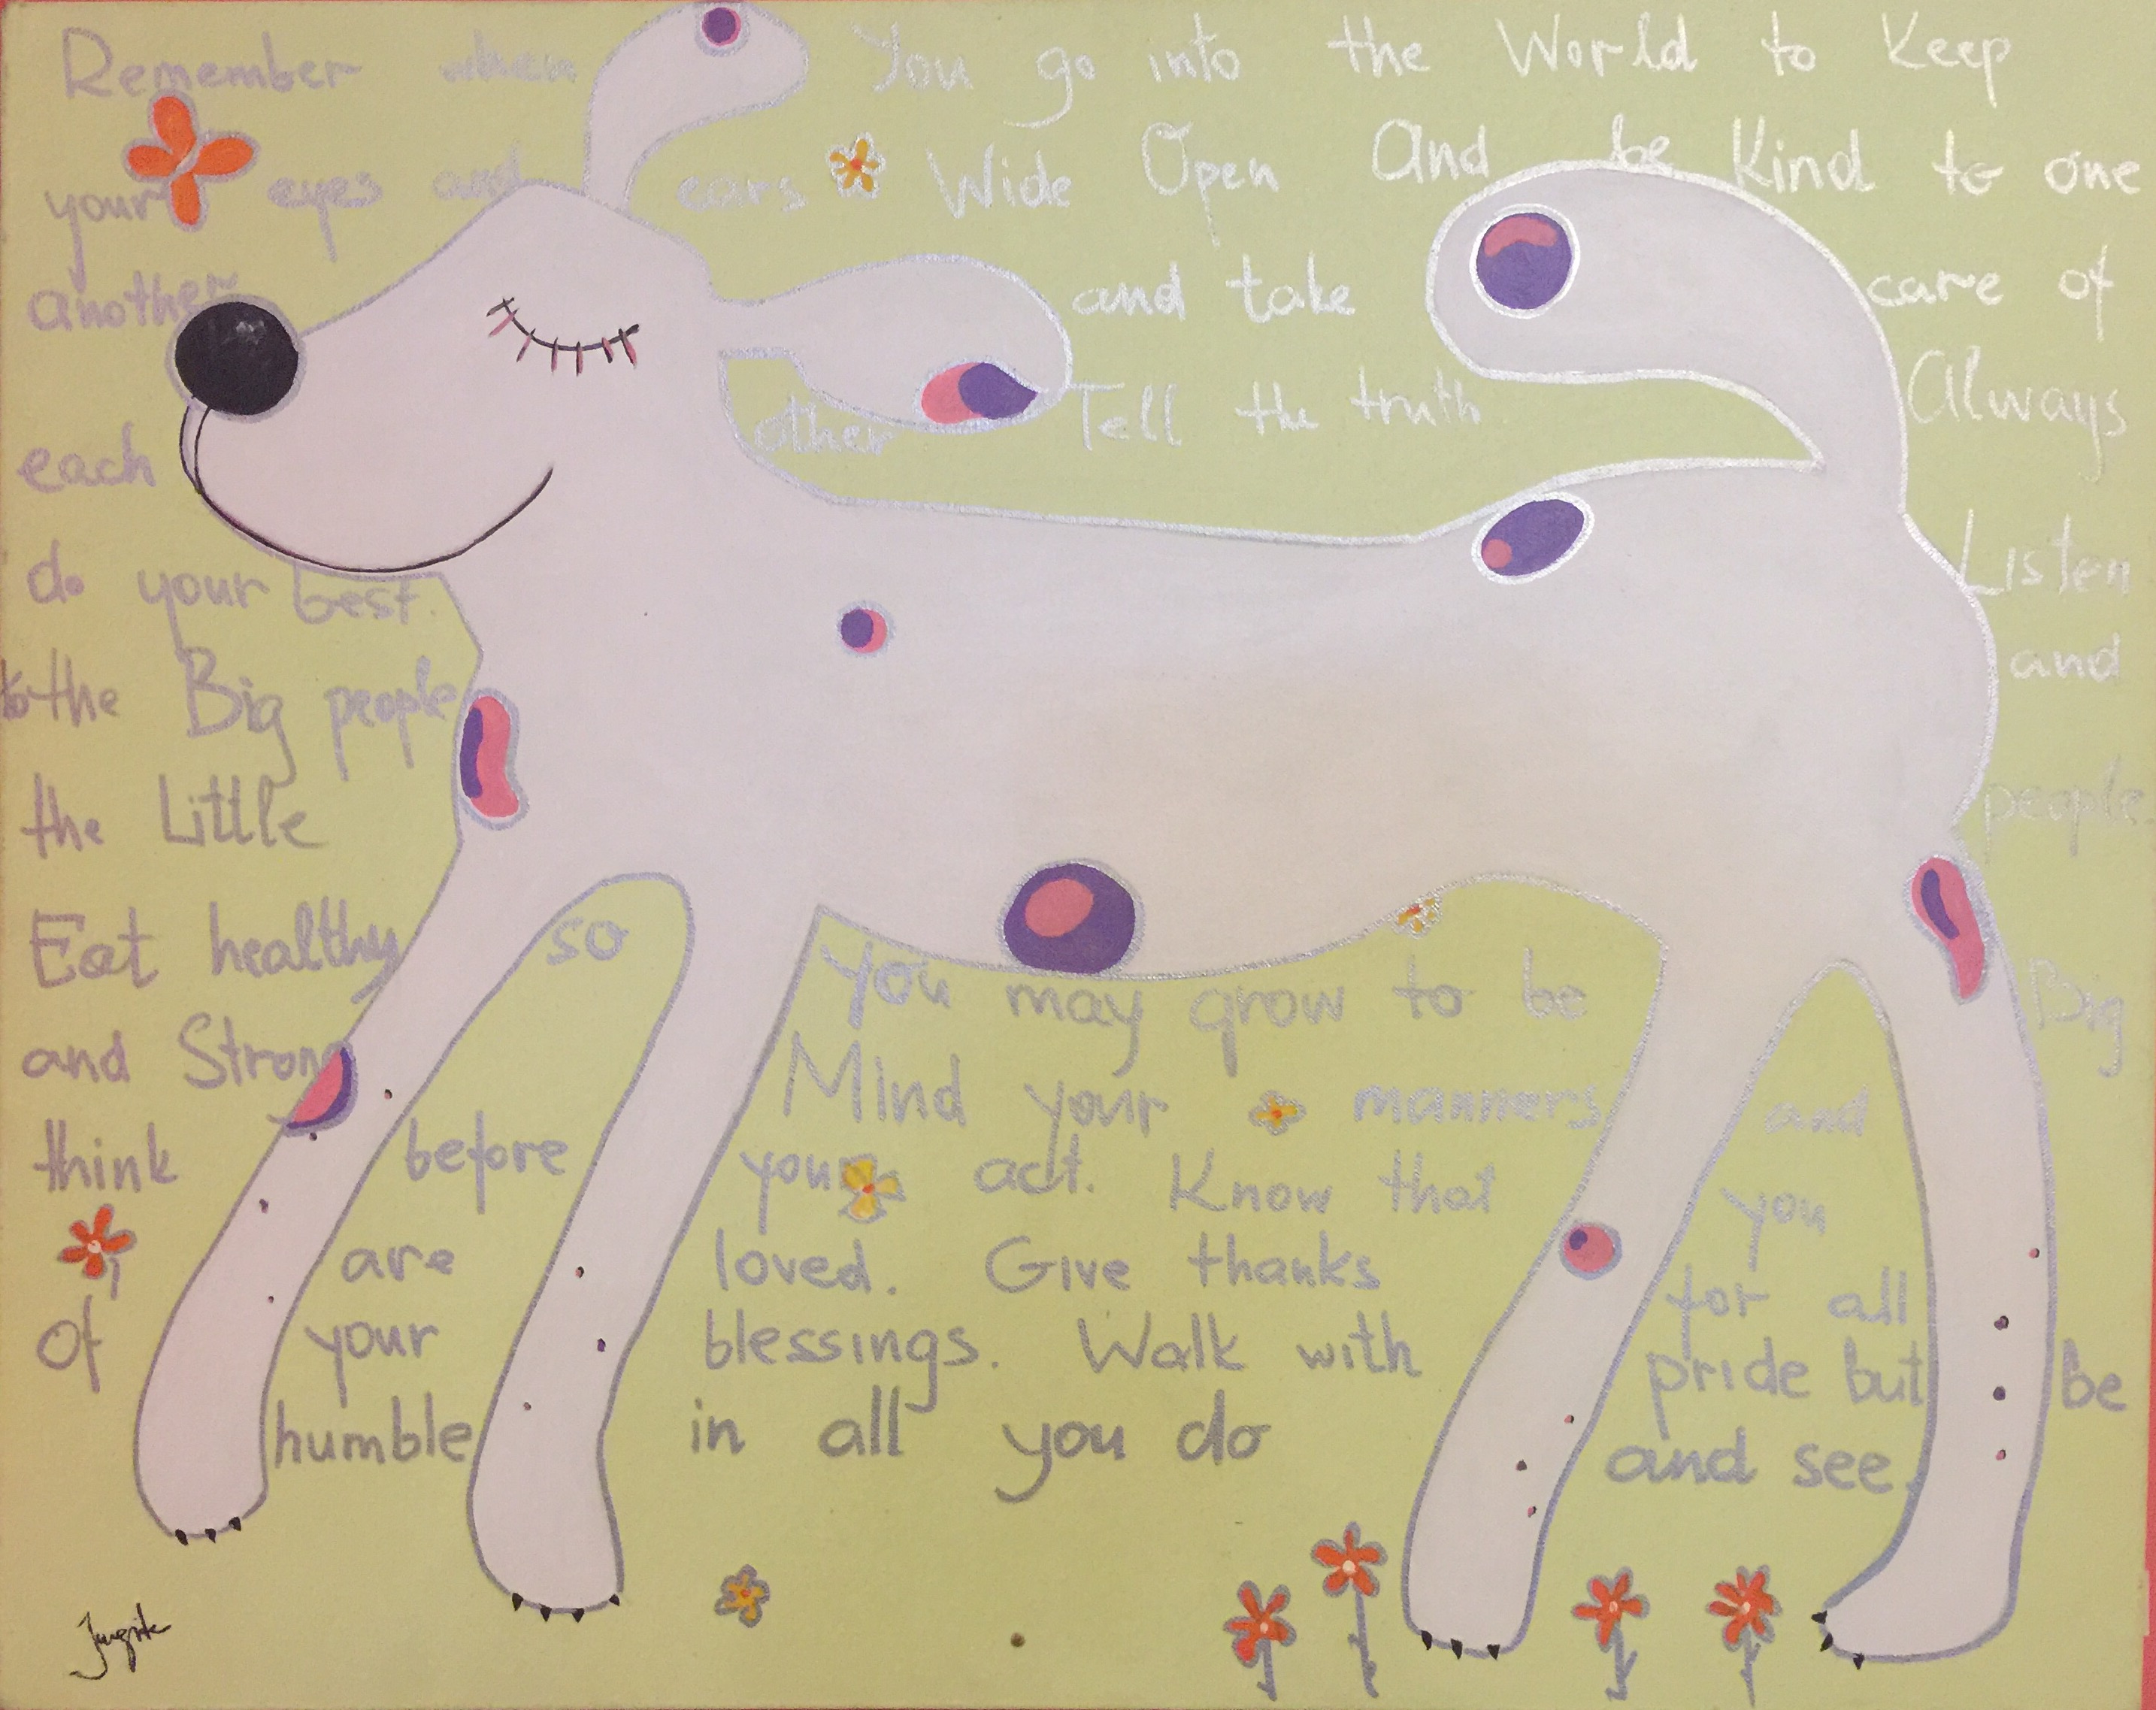 Remember when You go into the World to Keep
your eyes and ears Wide Open And be Kind to one
another and take care of
each other Tell the truth Always
do your best. Listen
to the Big people and
the Little people.
Eat healthy so you may grow to be Big
and Strong Mind your manners and
think before you act. Know that you
are loved. Give thanks for all
of your blessings. Walk with pride but be
humble in all you do and see.